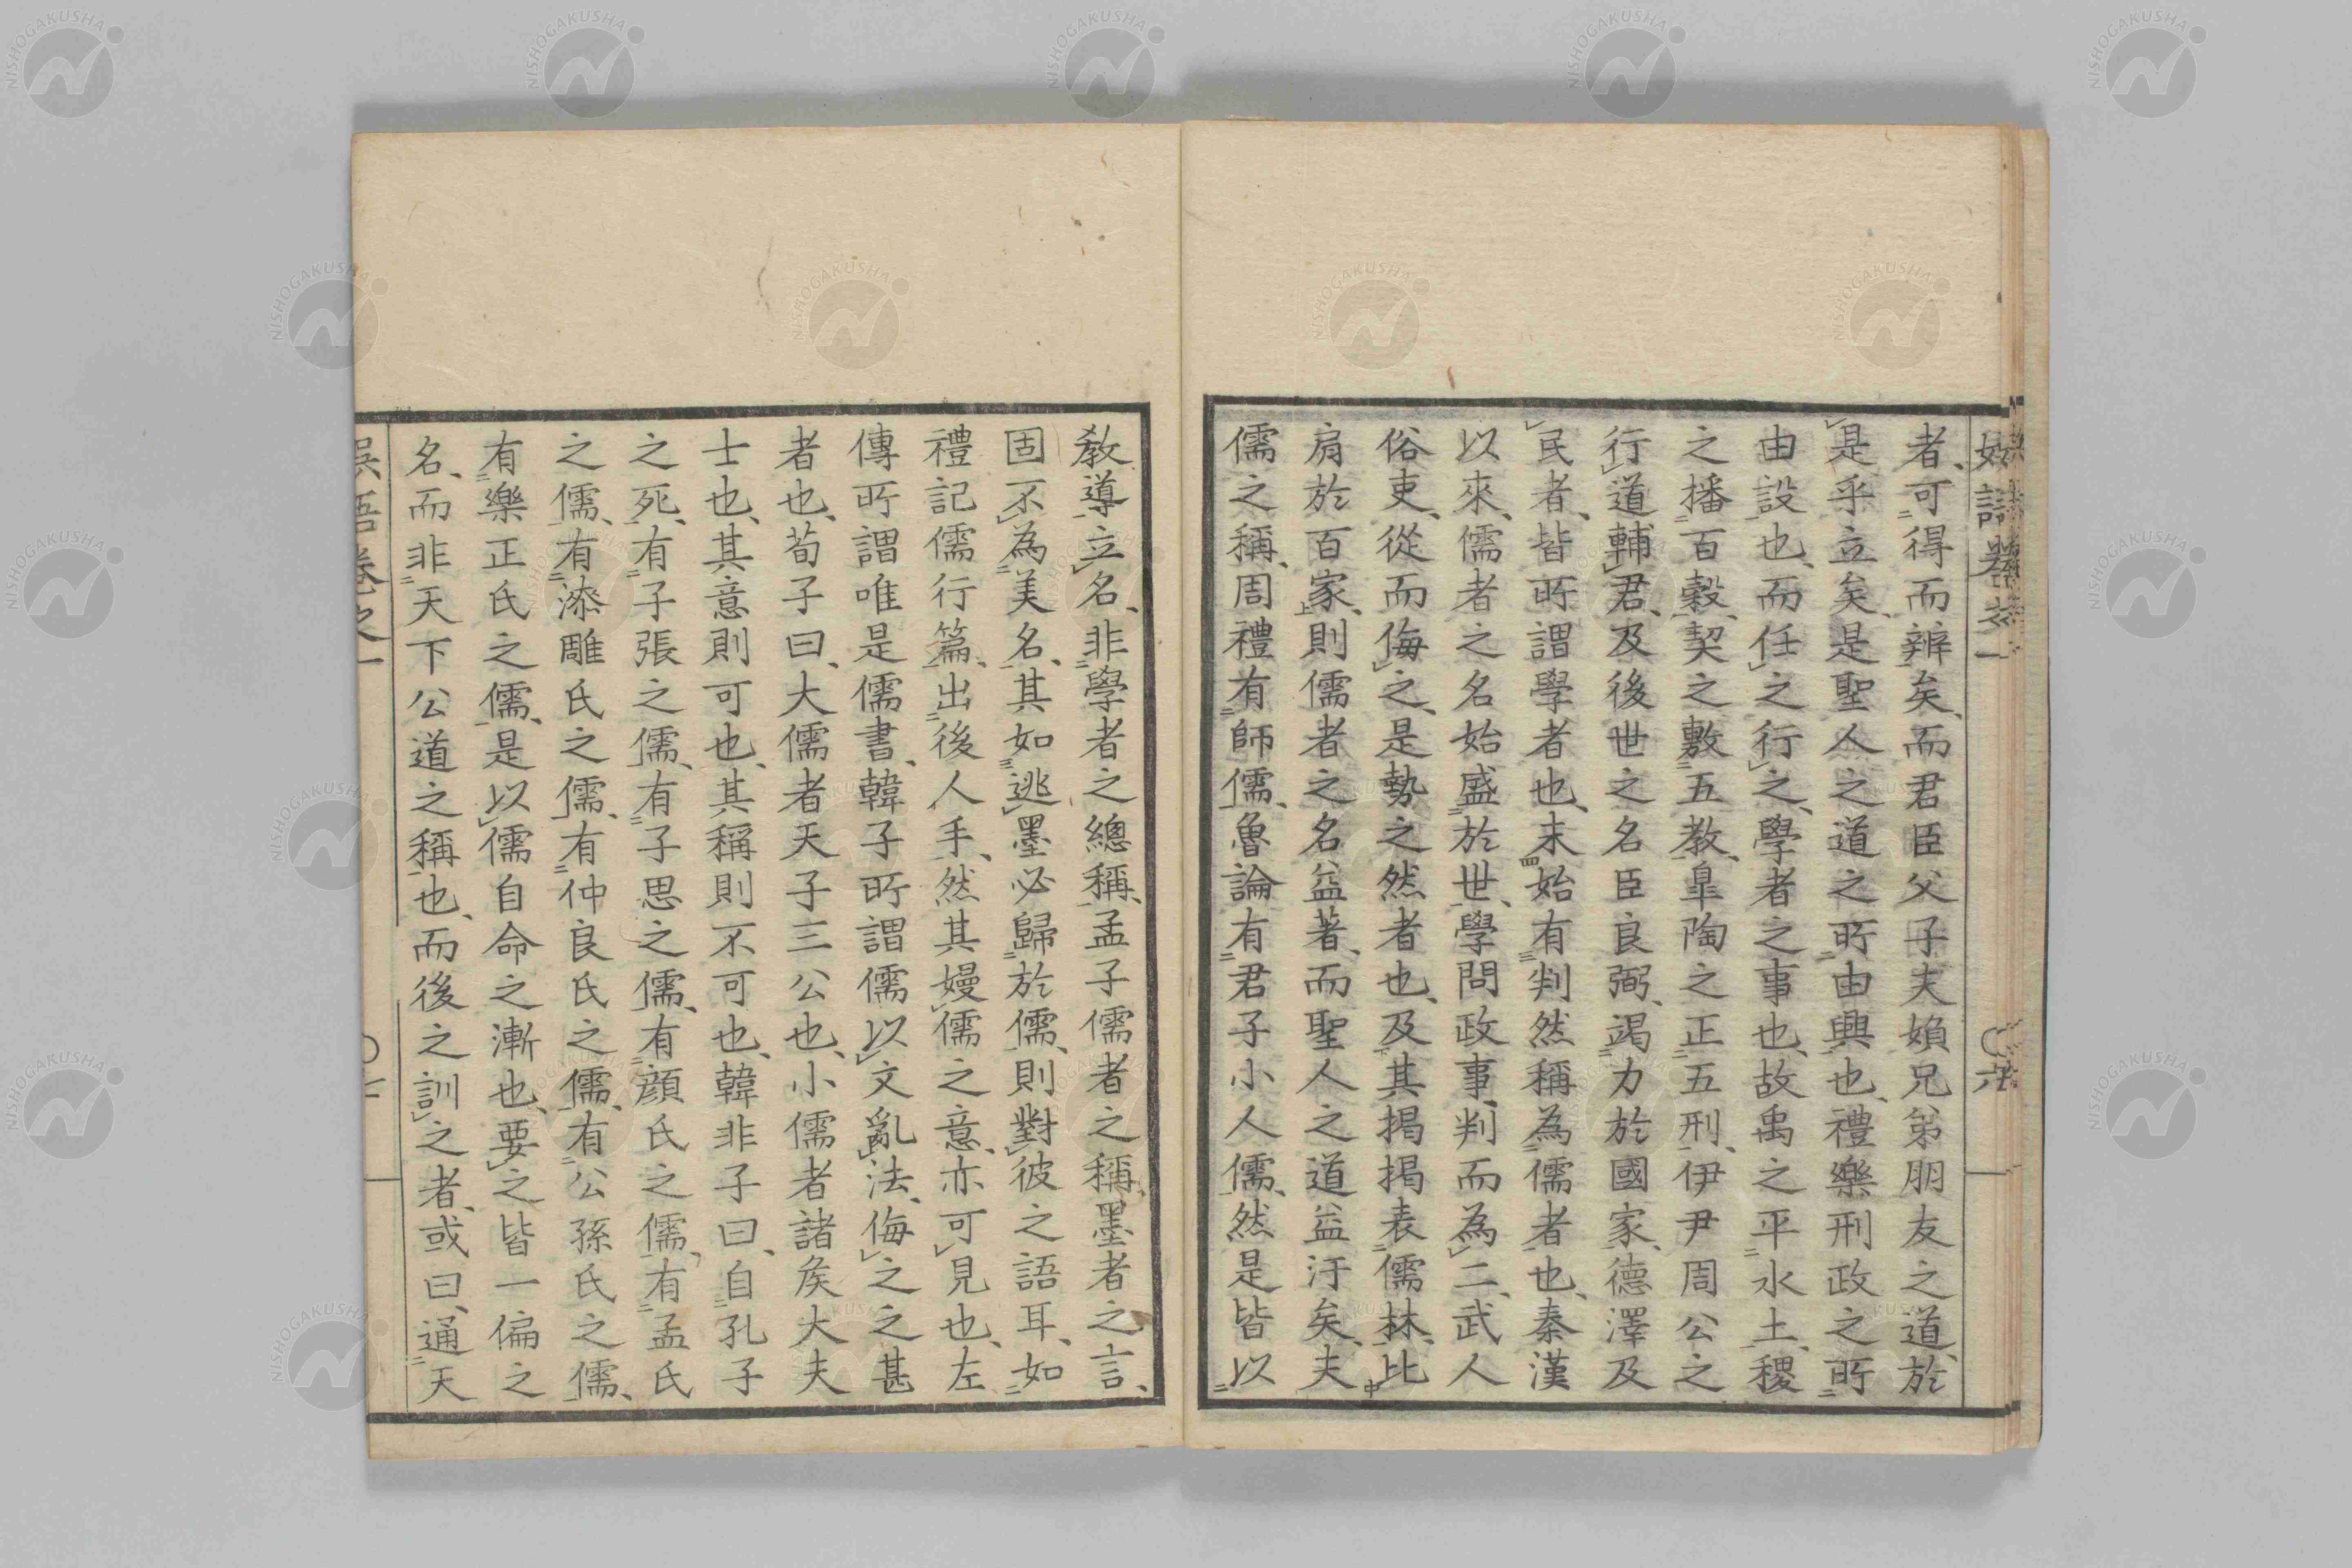 者、可得而辨矣、而君臣父子夫婦兄弟朋友之道、於
是乎立矣、是聖人之道之所由興也、禮樂刑政之所
由設也、而任之行之、學者之事也、故禹之平水土、稷
之播百穀、契之敷五教、皐陶之正五刑、伊尹周公之
行道輔君、及後世之名臣良弼、竭力於國家、德澤及
民者、皆所謂學者也、末始有判然稱為儒者也、秦漢
以來、儒者之名始盛於世、學問政事、判而為二、武人
俗吏、從而侮之、是勢之然者也、及其揭揭表儒林、比
肩於百家、則儒者之名益著、而聖人之道益汙矣、夫
儒之稱、周禮有師儒、魯論有君子小人儒、然是皆以
教導立名、非學者之總稱、孟子儒者之稱、墨者之言、
固不為美名、其如逃墨必歸於儒、則對彼之語耳、如
禮記儒行篇、出後人手、然其嫚儒之意、亦可見也、左
傳所謂唯是儒書、韓子所謂儒以文亂法、侮之之甚
者也、荀子曰、大儒者天子三公也、小儒者諸矦大夫
士也、其意則可也、其稱則不可也、韓非子曰、自孔子
之死、有子張之儒、有子思之儒、有顏氏之儒、有孟氏
之儒、有漆雕氏之儒、有仲良氏之儒、有公孫氏之儒、
有樂正氏之儒、是以儒自命之漸也、要之皆一偏之
名、而非天下公道之稱也、而後之訓之者、或曰、通天
語卷之一